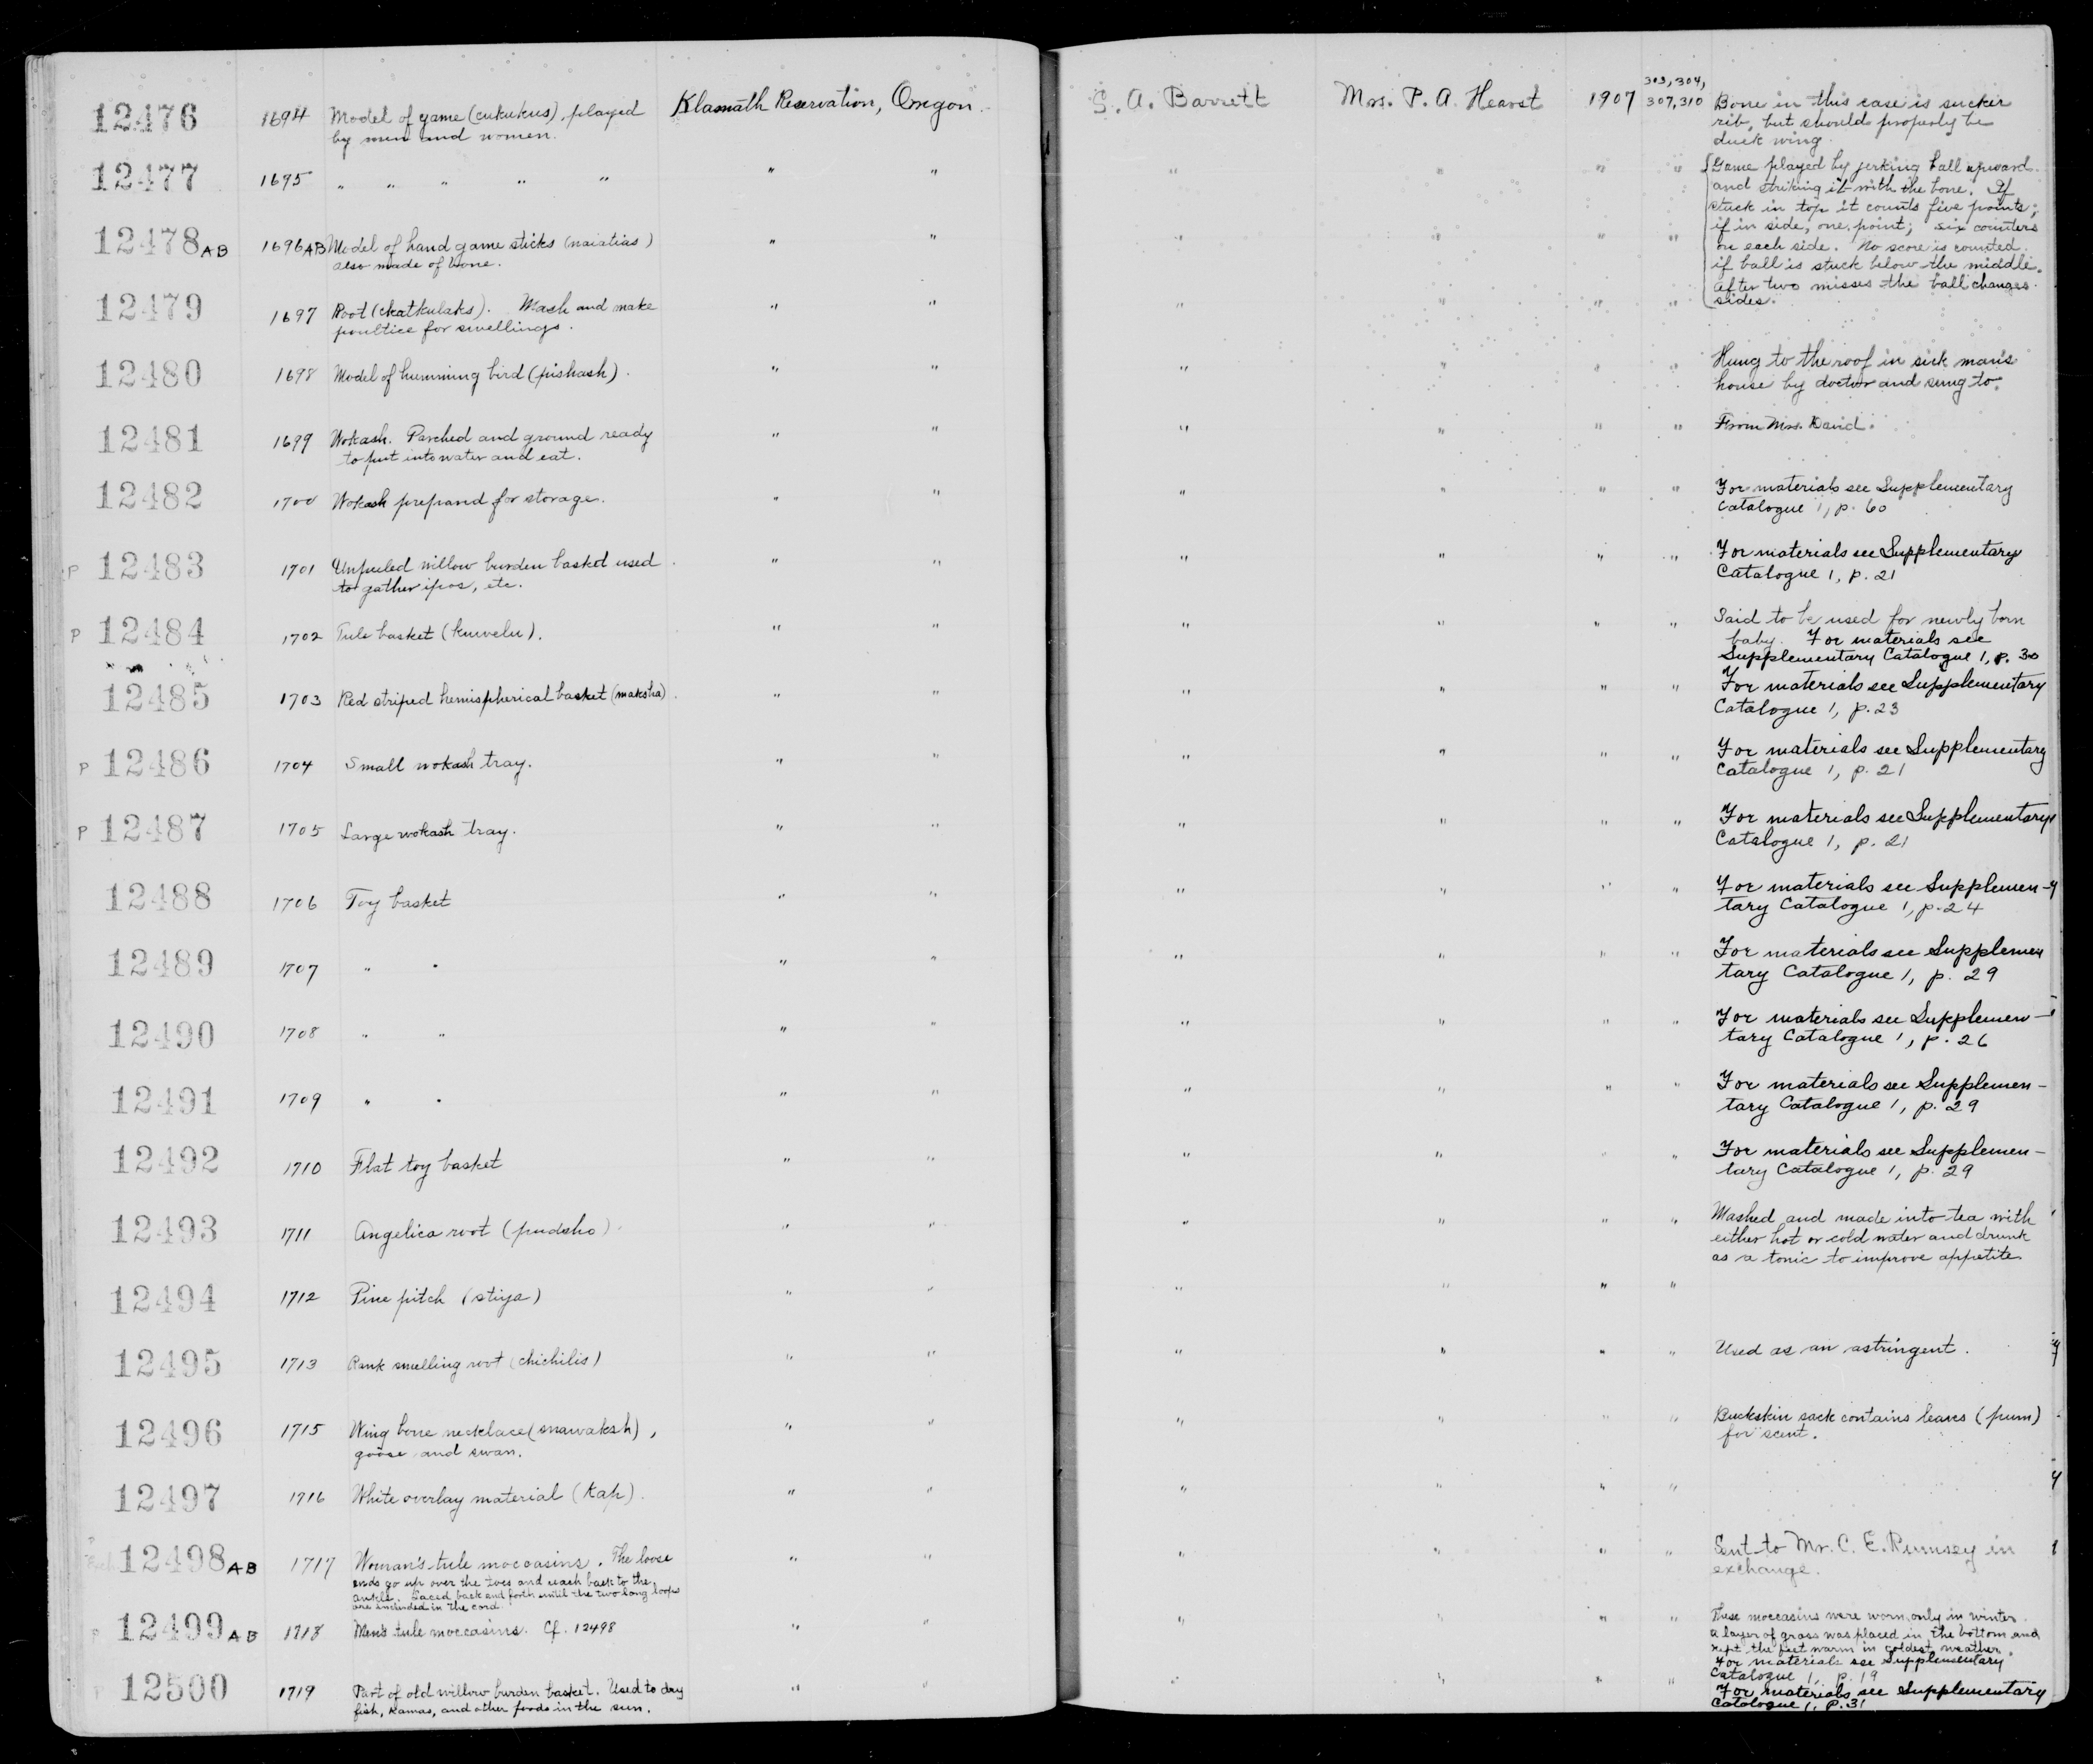 303, 304,
12476 1694 Model of game (cukukus), played Klamath Reservation, Oregon. S. A. Barrett Mrs. P. A. Hearst 1907 307, 310 Bone in this case is sucker
by men and women. rib, but should properly be
duck wing.
12477 1695 " " " " " " " " " " " Game played by jerking ball upward
and striking it with the bone. If
stuck in top it counts five points;
12478 AB 1696 AB Model of hand game sticks (naiatias) " " " " " " if in side, one point; six counters
also made of bone. on each side. No score is counted
if ball is stuck below the middle.
12479 1697 Root (ckatkulaks). Mash and make " " " " " " After two misses the ball changes
poultice for swellings. sides.
12480 1698 Model of humming bird (pishash). " " " " " " Hung to the roof in sick man's
house by doctor and sung to.
12481 1699 Wokash. Parched and ground ready " " " " " " From Mrs. David.
to put into water and eat.
12482 1700 Wokash prepared for storage. " " " " " " For materials see Supplementary
Catalogue 1, p. 60
P 12483 1701 Unpeeled willow burden basket used " " " " " " For materials see Supplementary
to gather ipos, etc. Catalogue 1, p. 21
P 12484 1702 Tule basket (kuwelu). " " " " " " Said to be used for newly born
baby. For materials see
Supplementary Catalogue 1, p. 30
12485 1703 Red striped hemispherical basket (maksha). " " " " " " For materials see Supplementary
Catalogue 1, p. 23
P 12486 1704 Small wokash tray. " " " " " " For materials see Supplementary
Catalogue 1, p. 21
P 12487 1705 Large wokash tray. " " " " " " For materials see Supplementary
Catalogue 1, p. 21
12488 1706 Toy basket " " " " " " For materials see Supplemen-
tary Catalogue 1, p. 24
12489 1707 " " " " " " " " For materials see Supplemen
tary Catalogue 1, p. 29
12490 1708 " " " " " " " " For materials see Supplemen-
tary Catalogue 1, p. 26
12491 1709 " " " " " " " " For materials see Supplemen-
tary Catalogue 1, p. 29
12492 1710 Flat toy basket " " " " " " For materials see Supplemen-
tary Catalogue 1, p. 29
12493 1711 Angelica root (pudsho) " " " " " " Mashed and made into tea with
either hot or cold water and drunk
as a tonic to improve appetite
12494 1712 Pine pitch (stiya) " " " " " "
12495 1713 Rank smelling root (chichilis) " " " " " " Used as an astringent.
12496 1715 Wing bone necklace (snawaksh), " " " " " " Buckskin sack contains leaves (pum)
goose and swan. for scent.
12497 1716 White overlay material (kap). " " " " " "
12498 AB 1717 Woman's tule moccasins. The loose " " " " " " Sent to Mr. C. E. Rumsey in
ends go up over the toes and reach back to the exchange.
ankle. Laced back and forth until the two long loops
are included in the cord.
12499 AB 1718 Men's tule moccasins. Cf. 12498 " " " " " " These moccasins were worn only in winter.
A layer of grass was placed in the bottom and
kept the feet warm in coldest weather.
For materials see Supplementary
Catalogue 1, p. 19
12500 1719 Part of old willow burden basket. Used to dry " " " " " " For materials see Supplementary
fish, kamas, and other foods in the sun. Catalogue 1, p. 31